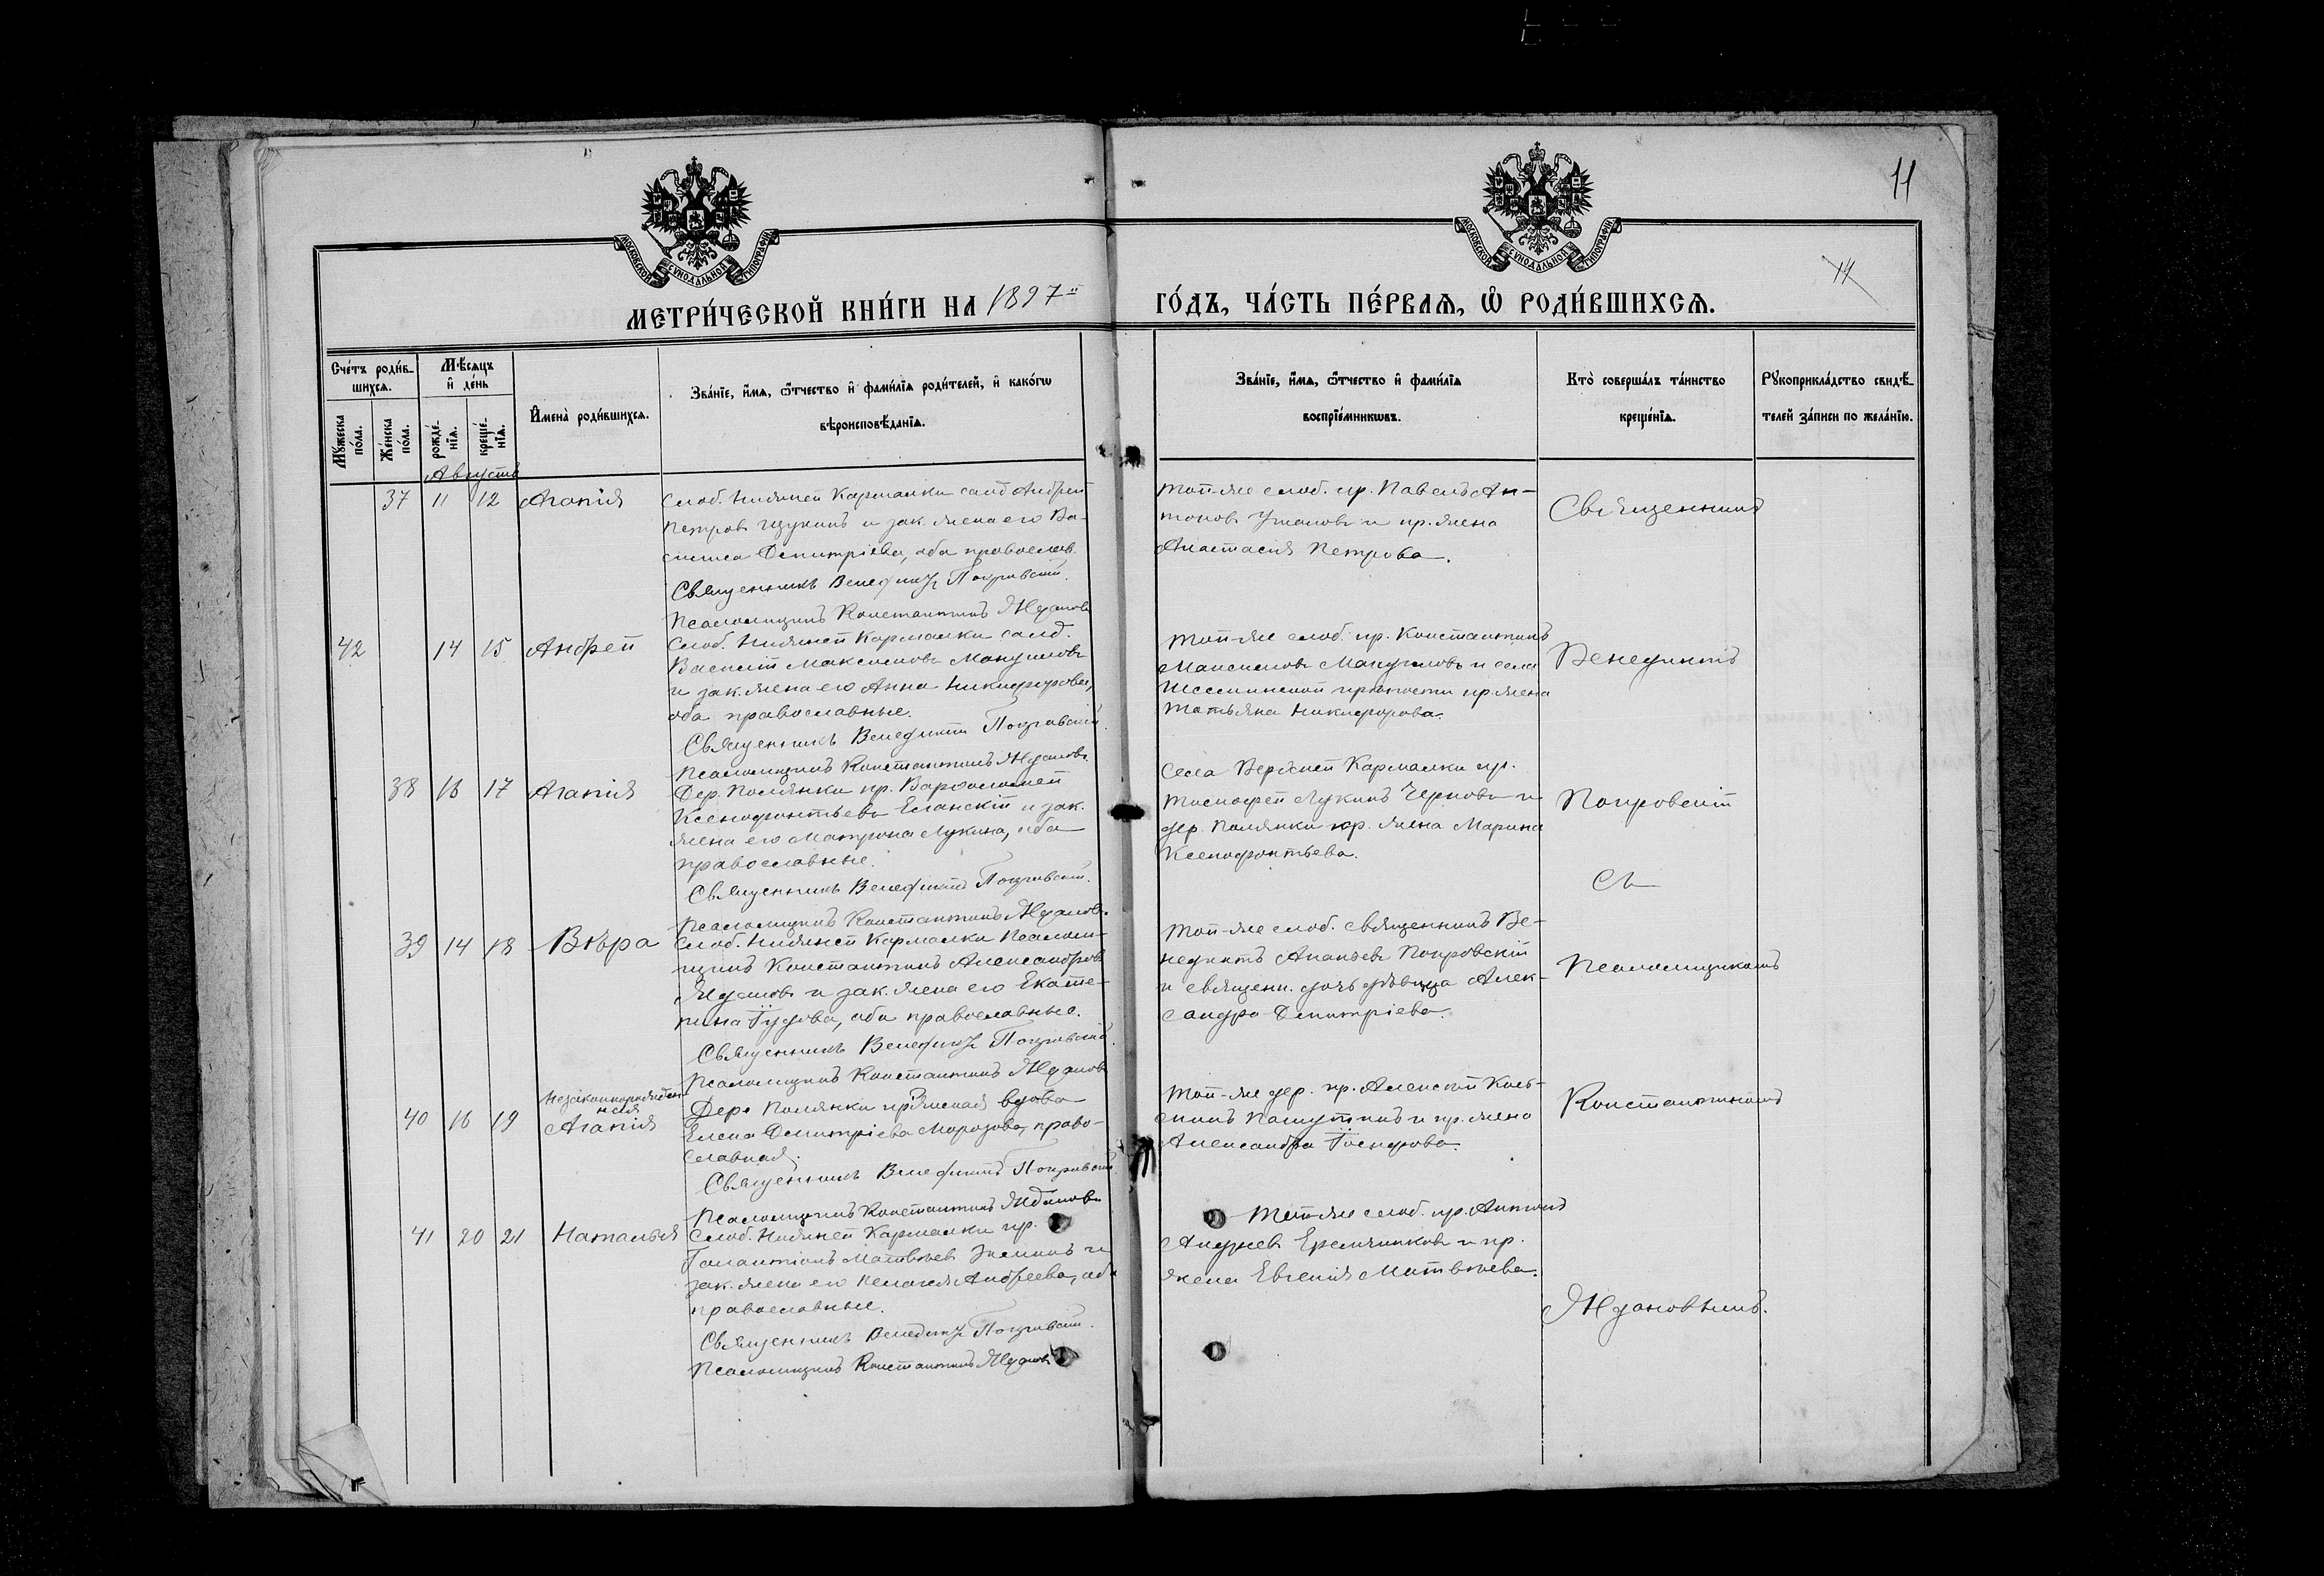 11
14
МОСКОВСКОЙ СѴНОДАЛЬНОЙ ТИПОГРАФІИ
МОСКОВСКОЙ СѴНОДАЛЬНОЙ ТИПОГРАФІИ
МЕТРИ́ЧЕСКОЙ КНИ́ГИ НА 1897й ГО́ДЪ, ЧА́СТЬ ПЕ́РВАѦ, Ѡ РОДИ́ВШИХСѦ.
Сче́тъ роди́в-
шихсѧ.
Мѣ́сѧцъ
и҆ де́нь
Мꙋ́жеска по́ла.
Же́нска по́ла.
рожде́-
нїѧ.
креще́-
нїѧ.
И҆мена̀ роди́вшихсѧ.
Зва́нїе, и҆́мѧ, ѻ҆́тчество и҆ фами́лїѧ роди́телей, и҆ како́гѡ
вѣроисповѣ́данїѧ.
Зва́нїе, и҆́мѧ, ѻ҆́тчество и҆ фами́лїѧ
воспрїе́мникѡвъ.
Кто̀ соверша́лъ та́инство
креще́нїѧ.
Рꙋкоприкла́дство свидѣ́-
телей за́писи по жела́нїю.
Августъ
37 11 12 Агапія
Слоб. Нижней Кармалки солд Андрей
Петровъ Щукинъ и зак. жена его Ва-
силиса Димитріева, оба православ.
Священникъ Венедиктъ Покровскій.
Псаломщикъ Константинъ Ждановъ
Той-же слоб. кр. Павелъ Ан-
тоновъ и кр. жена
Анастасія Петрова.
Священникъ
42 14 15 Андрей
Слоб. Нижней Кармалки солд.
Василій Максимовъ Мануиловъ
и зак. жена его Анна Никифорова,
оба православные.
Священникъ Венедиктъ Покровскій.
Псаломщикъ Константинъ Ждановъ
Той-же слоб. кр. Константинъ
Максимовъ Мануиловъ и села
Шешминской крѣпости кр. жена
Татьяна Никифорова.
Венедиктъ
38 16 17 Агапія
Дер. Полянки кр. Варфоломей
Ксенофонтьевъ Еланскій и зак.
жена его Матрона Лукина, оба
православные.
Священникъ Венедиктъ Покровскій.
Псаломщикъ Константинъ Ждановъ.
Села Верхней Кармалки кр.
Тимофей Лукинъ Черновъ и
дер. Полянки кр. жена Марина
Ксенофонтьева.
Покровскій
Съ
39 14 18 Вѣра
Слоб. Нижней Кармалки Псалом-
щикъ Константинъ Александровъ
Ждановъ и зак. жена его Екате-
рина Гудова, оба православные.
Священникъ Венедиктъ Покровскій.
Псаломщикъ Константинъ Ждановъ
Той-же слоб. священникъ Ве-
недиктъ Ананьевъ Покровскій
и священн. дочь дѣвица Алек-
сандра Димитріева.
Псаломщикомъ
Незаконнорожден-
ная
40 16 19 Агапія
Дер. Полянки крестьянская вдова
Елена Димитріева Морозова, право-
славная.
Священникъ Венедиктъ Покровскій
Псаломщикъ Константинъ Ждановъ
Той-же дер. кр. Алексѣй Козь-
минъ и кр. жена
Александра
Константиномъ
41 20 21 Наталья
Слоб. Нижней Кармалки кр.
Галактіонъ Матвѣевъ Зиминъ и
зак. жена его Пелагія Андреева, оба
православные.
Священникъ Венедиктъ Покровскій.
Псаломщикъ Константинъ Ждановъ
Той-же слоб. кр. Антонъ
Андреевъ и кр.
жена Евгенія Матвѣева.
Ждановымъ.